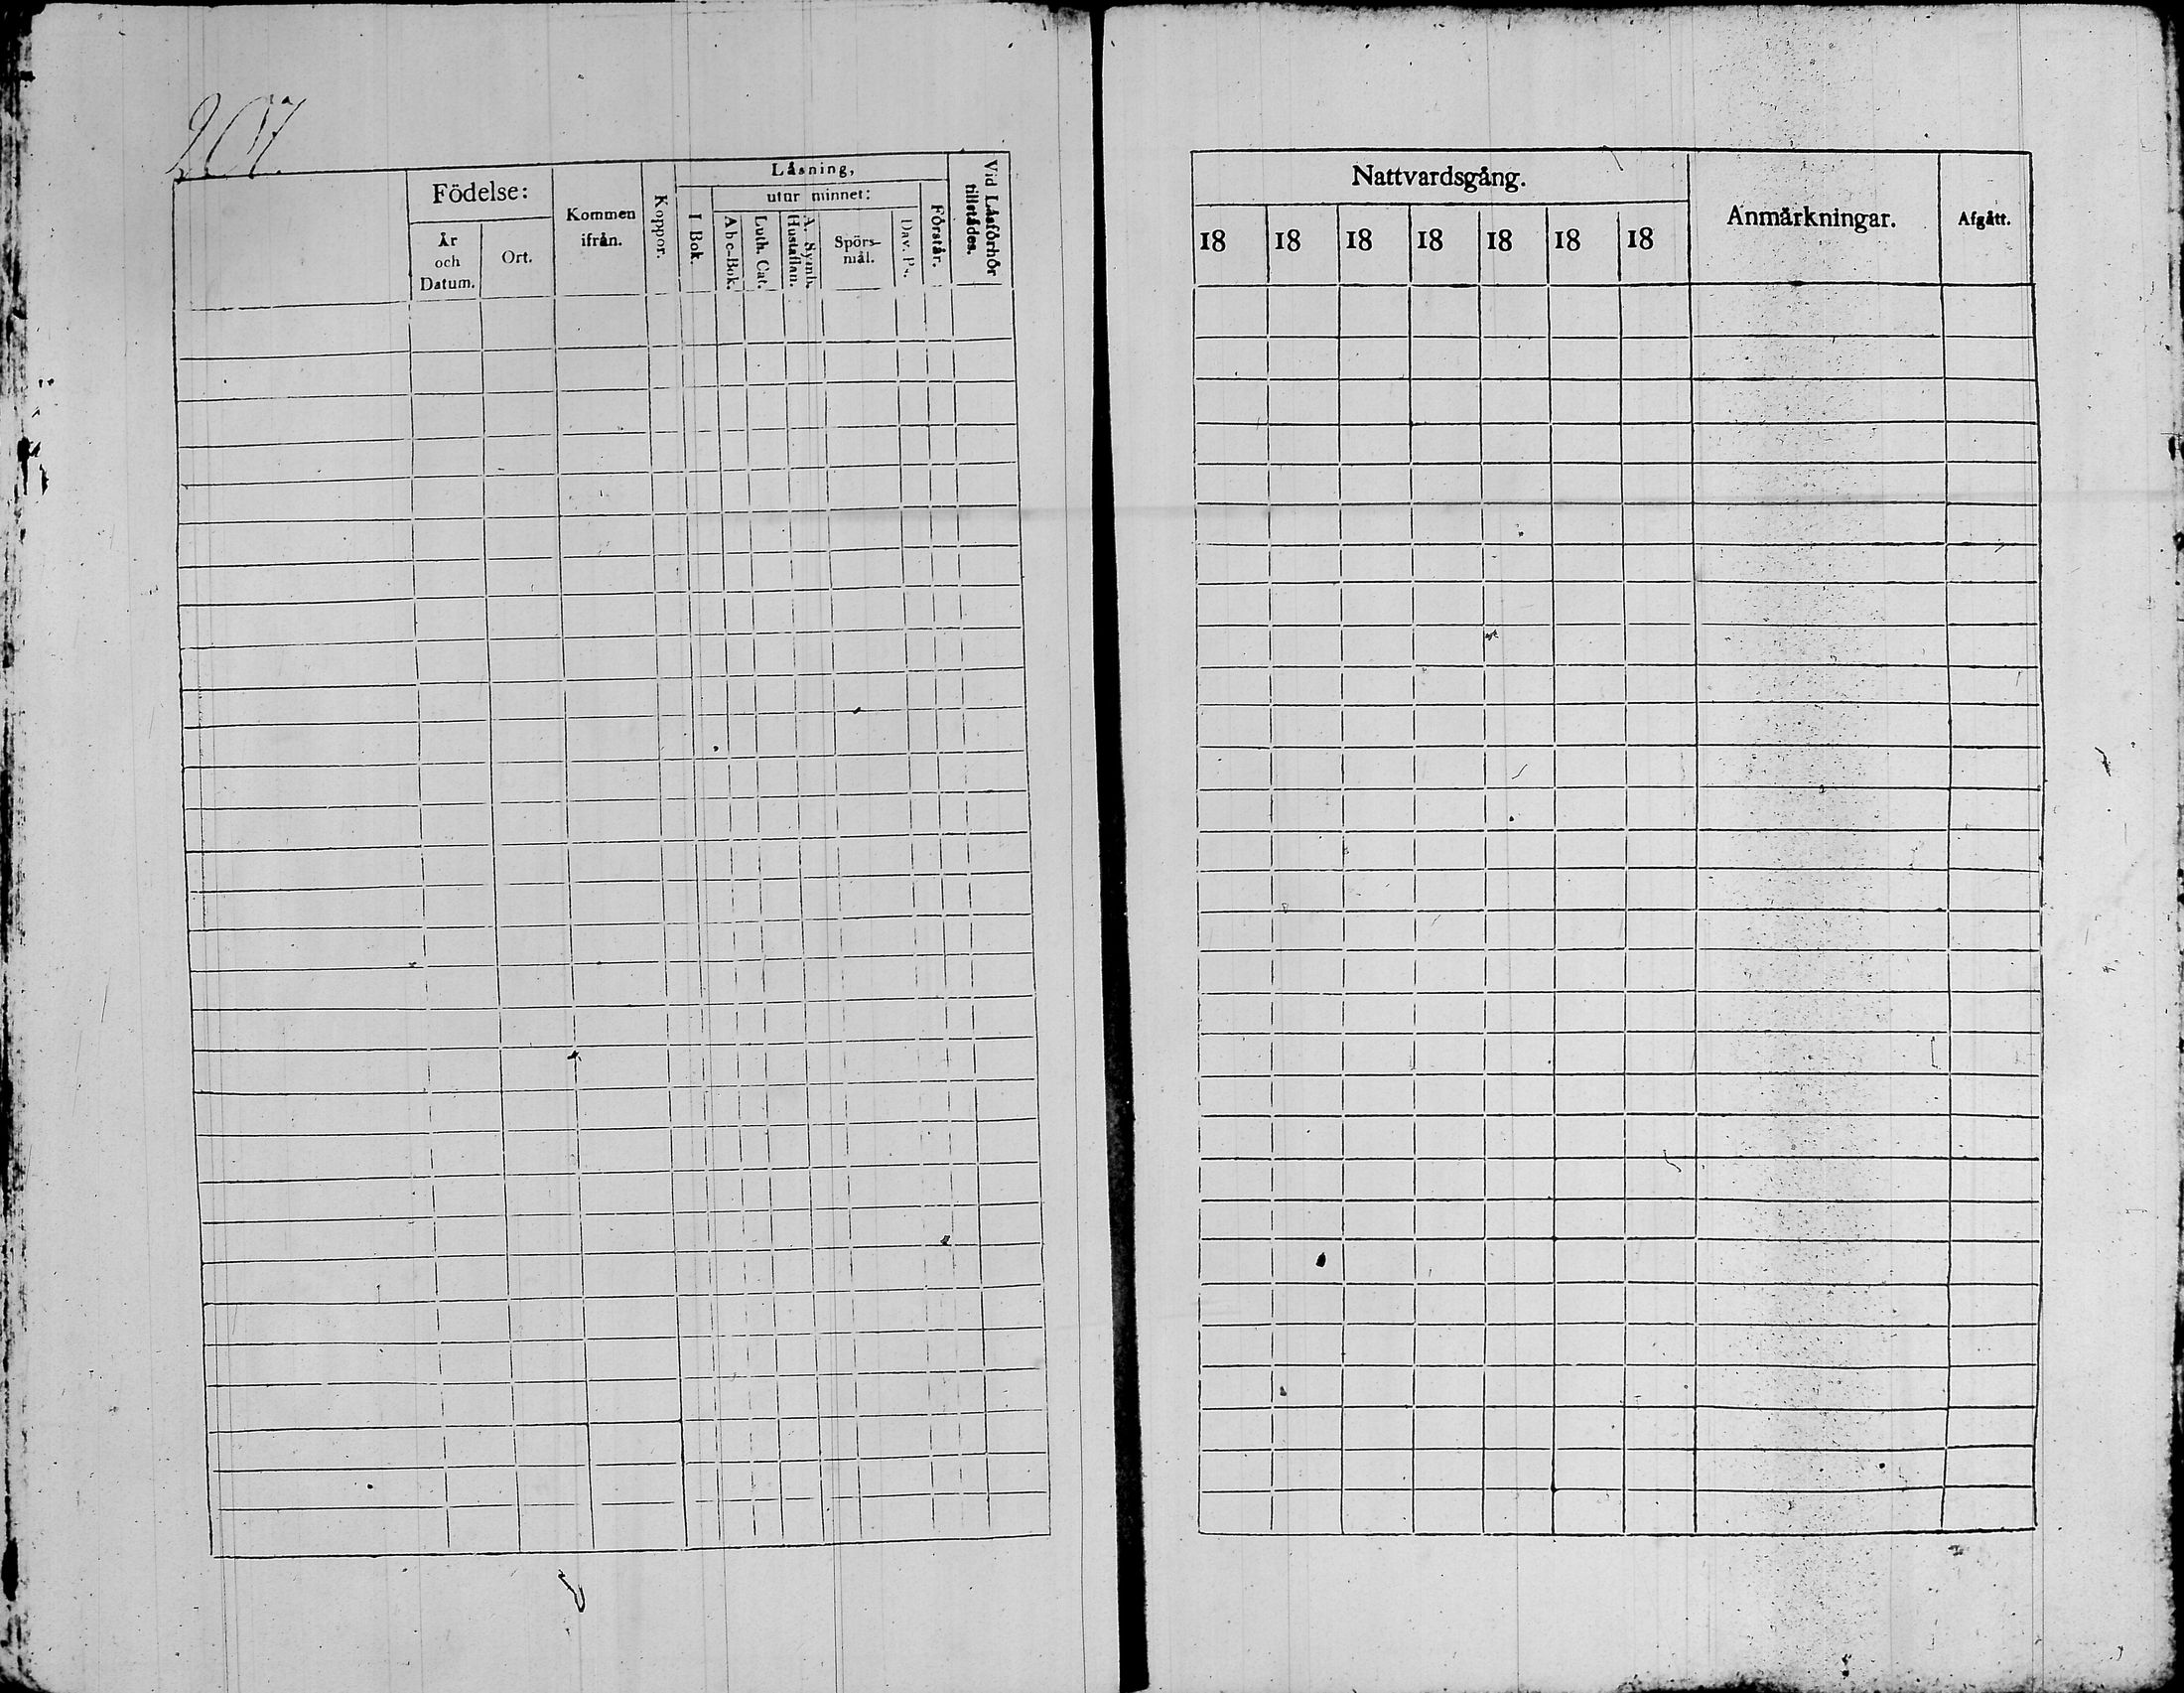 207.
Födelse:
År
och
Datum.
Ort.
Kommen
ifrån.
Koppor.
Läsning,
I Bok.
utur minnet:
Abc-Bok.
Luth. Cat.
A. Symb.
Hustaflan.
Spörs-
mål.
Dav. Ps.
Förstår.
Vid Läsförhör
tillstädes.
Nattvardsgång.
18 18 18 18 18 18 18
Anmärkningar.
Afgått.